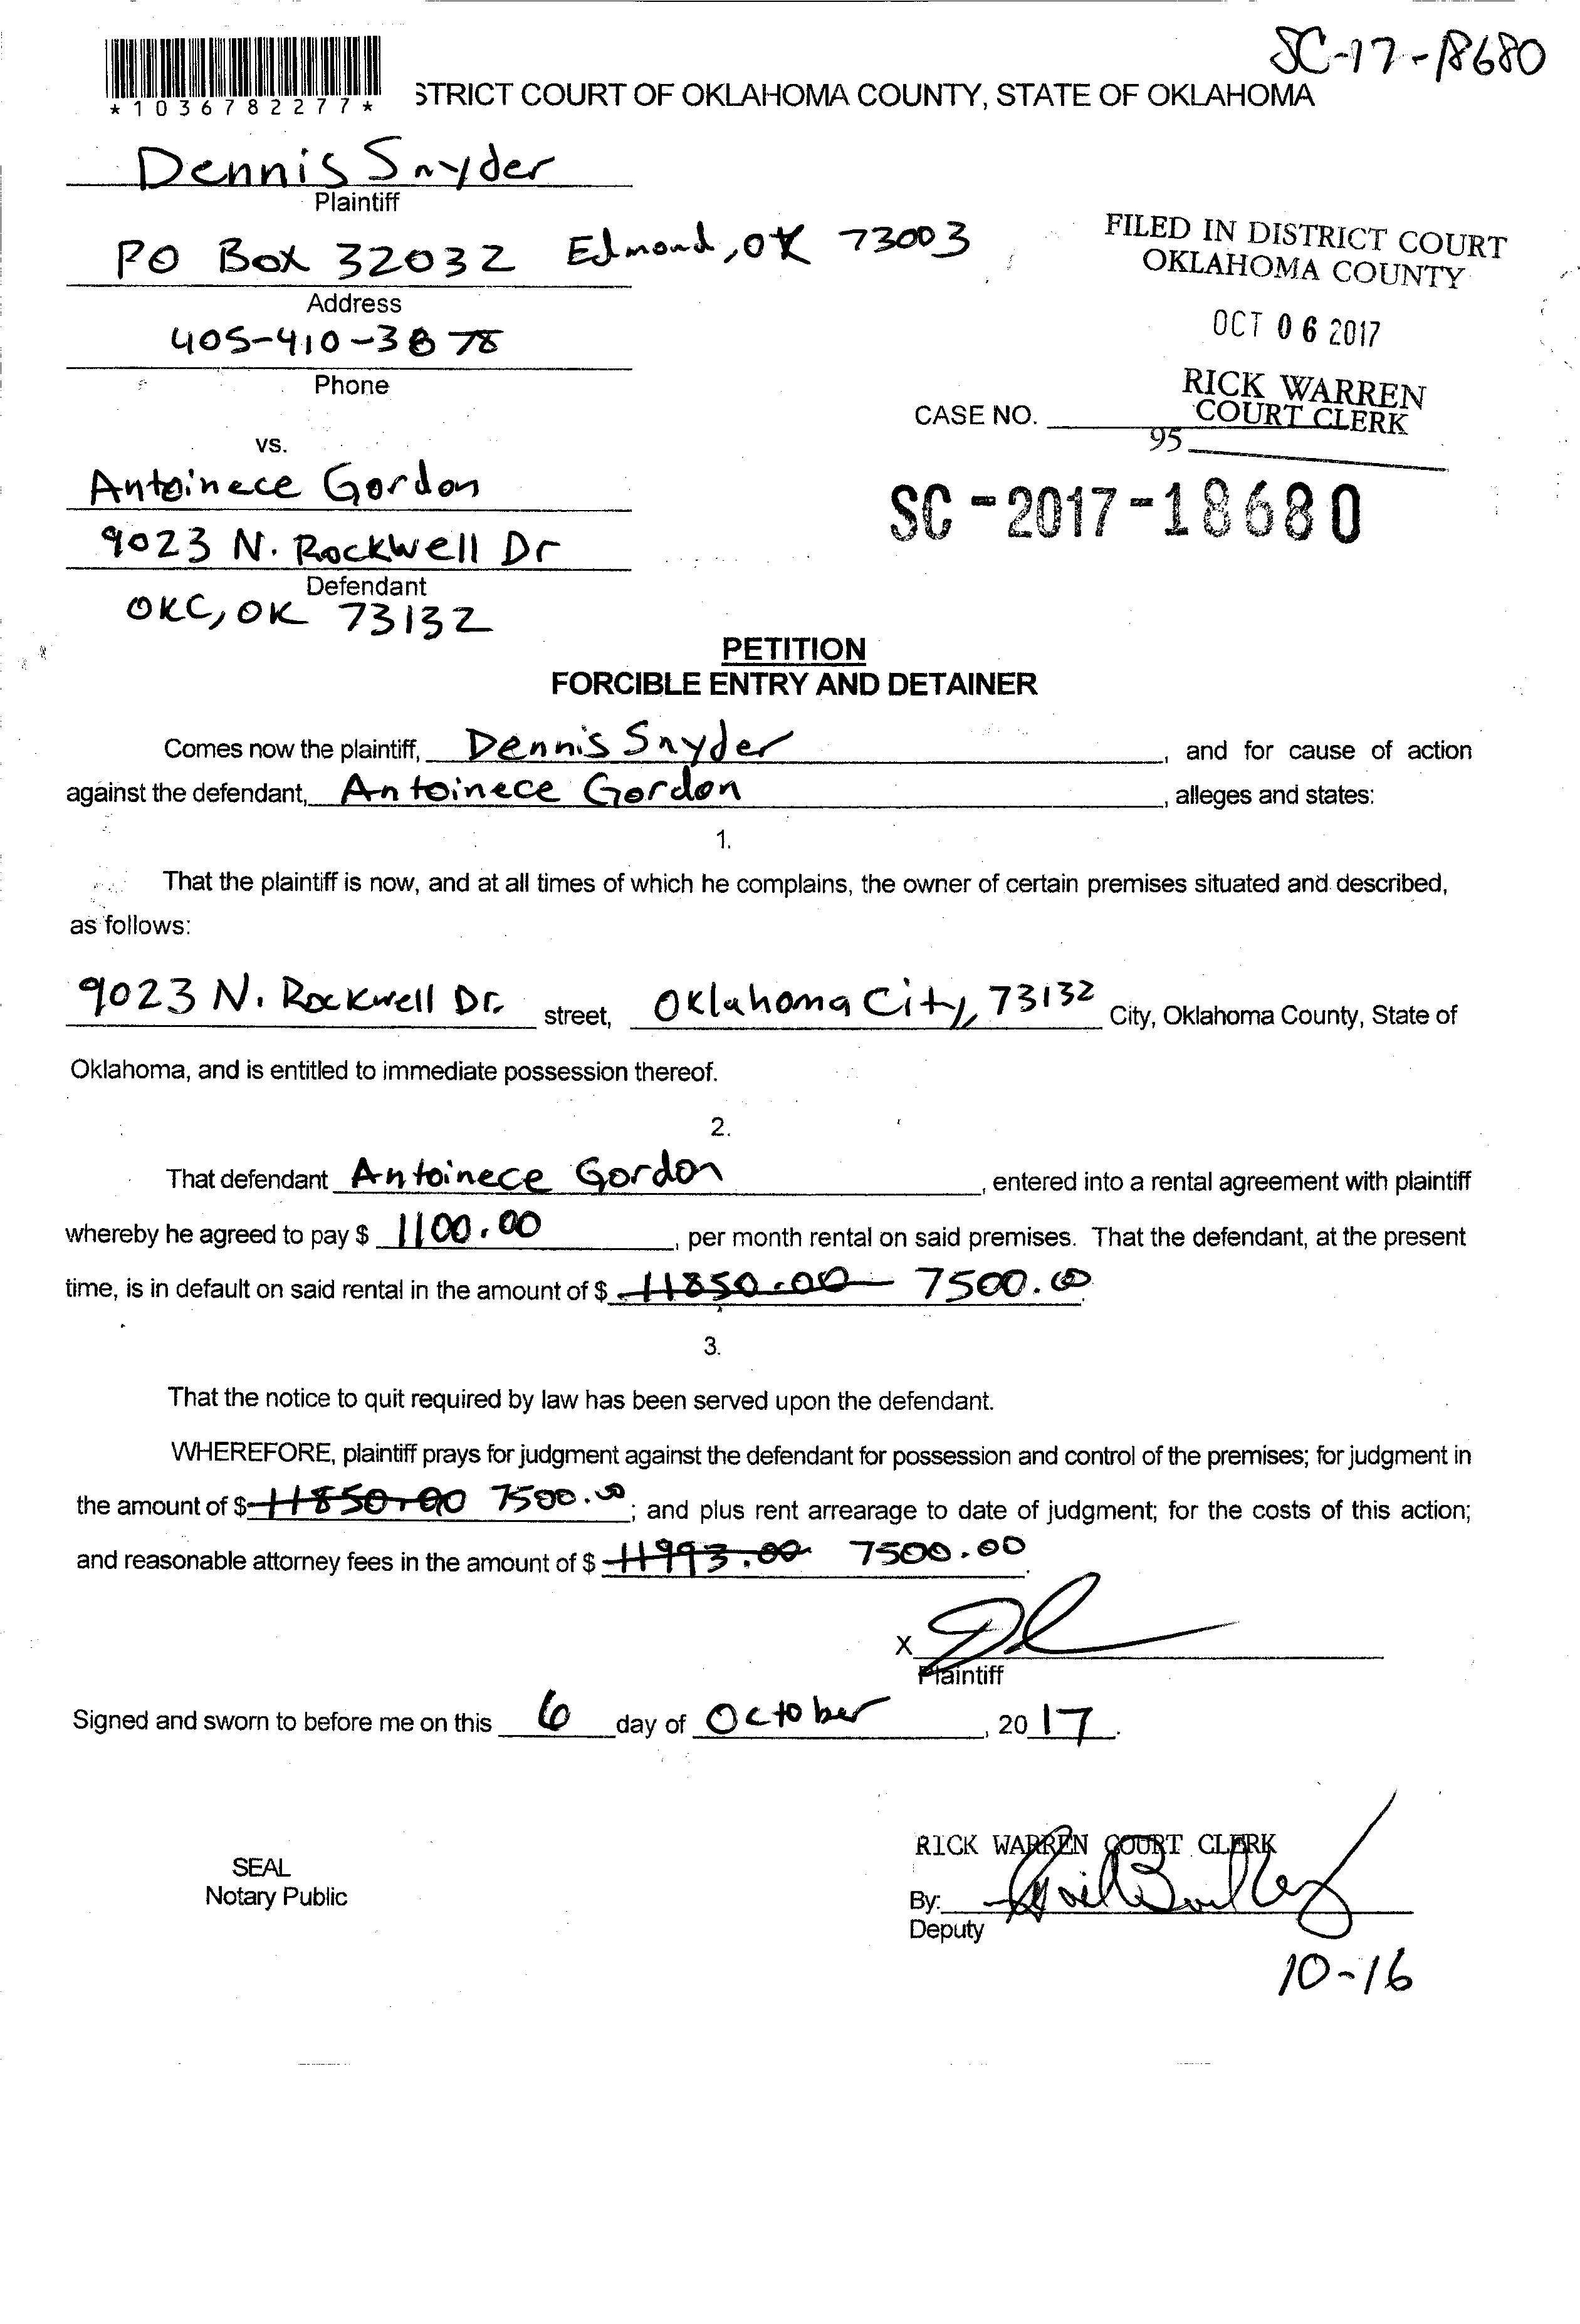 SC-17-18680
*1036782277*
STRICT COURT OF OKLAHOMA COUNTY, STATE OF OKLAHOMA
Dennis Snyder
Plaintiff
PO Box 32032 Edmond, OK 73003
Address
405-410-3878
Phone
FILED IN DISTRICT COURT
OKLAHOMA COUNTY
OCT 06 2017
RICK WARREN
COURT CLERK
CASE NO.
95
vs.
Antoinece Gordon
9023 N. Rockwell Dr
Defendant
OKC, OK 73132
SC-2017-18680
PETITION
FORCIBLE ENTRY AND DETAINER
Comes now the plaintiff, Dennis Snyder, and for cause of action
against the defendant, Antoinece Gordon, alleges and states:
1.
That the plaintiff is now, and at all times of which he complains, the owner of certain premises situated and described,
as follows:
9023 N. Rockwell Dr. street, Oklahoma City, 73132 City, Oklahoma County, State of
Oklahoma, and is entitled to immediate possession thereof.
2.
That defendant Antoinece Gordon, entered into a rental agreement with plaintiff
whereby he agreed to pay $ 1100.00, per month rental on said premises. That the defendant, at the present
time, is in default on said rental in the amount of $ 11850.00 7500.00.
3.
That the notice to quit required by law has been served upon the defendant.
WHEREFORE, plaintiff prays for judgment against the defendant for possession and control of the premises; for judgment in
the amount of $ 11850.00 7500.00; and plus rent arrearage to date of judgment; for the costs of this action;
and reasonable attorney fees in the amount of $ 11993.00 7500.00.
X
Plaintiff
Signed and sworn to before me on this 6 day of October, 2017.
RICK WARREN COURT CLERK
SEAL
Notary Public
By:
Deputy
10-16